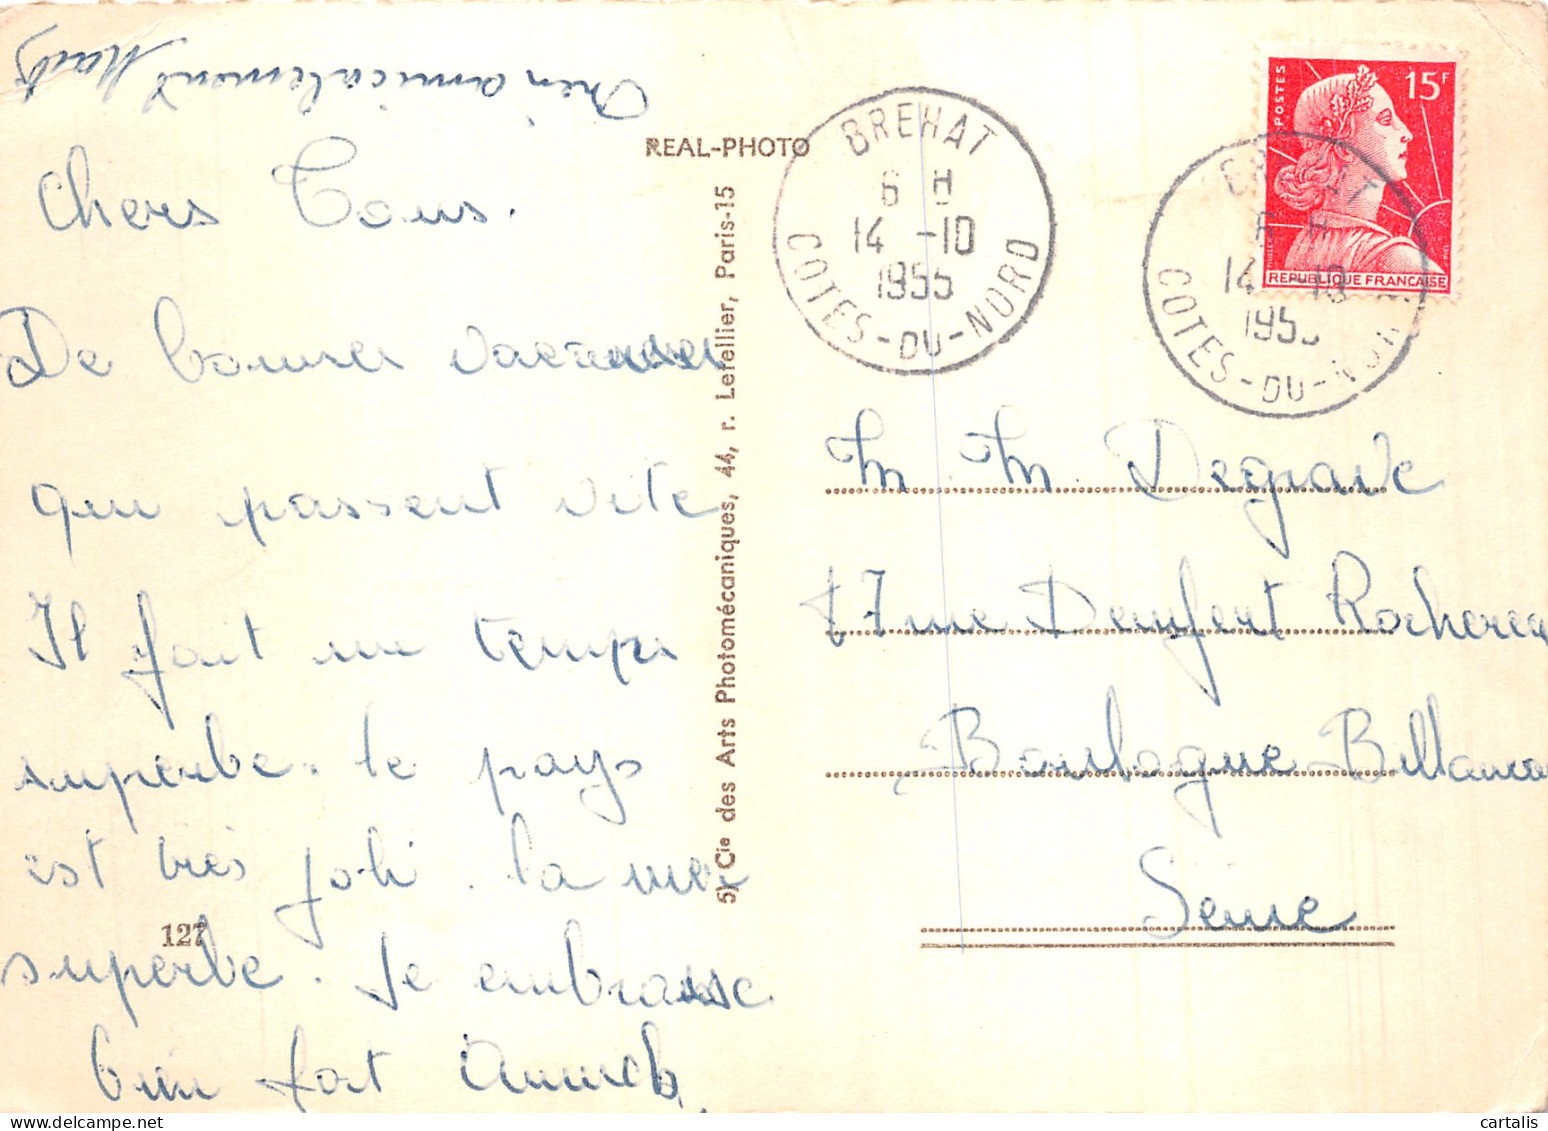 Bien amicalement
Chers Tous.
De bonnes vacances
qui passent vite
Il fait un temps
superbe. le pays
est très joli. la mer
superbe. Je embrasse
bien fort Annick
127
REAL-PHOTO
5) Cie des Arts Photomécaniques, 44, r. Letellier, Paris-15
BREHAT
6 H
14 -10
1955
COTES-DU-NORD
POSTES
15F
REPUBLIQUE FRANCAISE
BREHAT
6 H
14 -10
195
COTES-DU-NOR
M. M. Degrave
17 rue Denfert Rochereau
Boulogne Billanco
Seine
cartalis